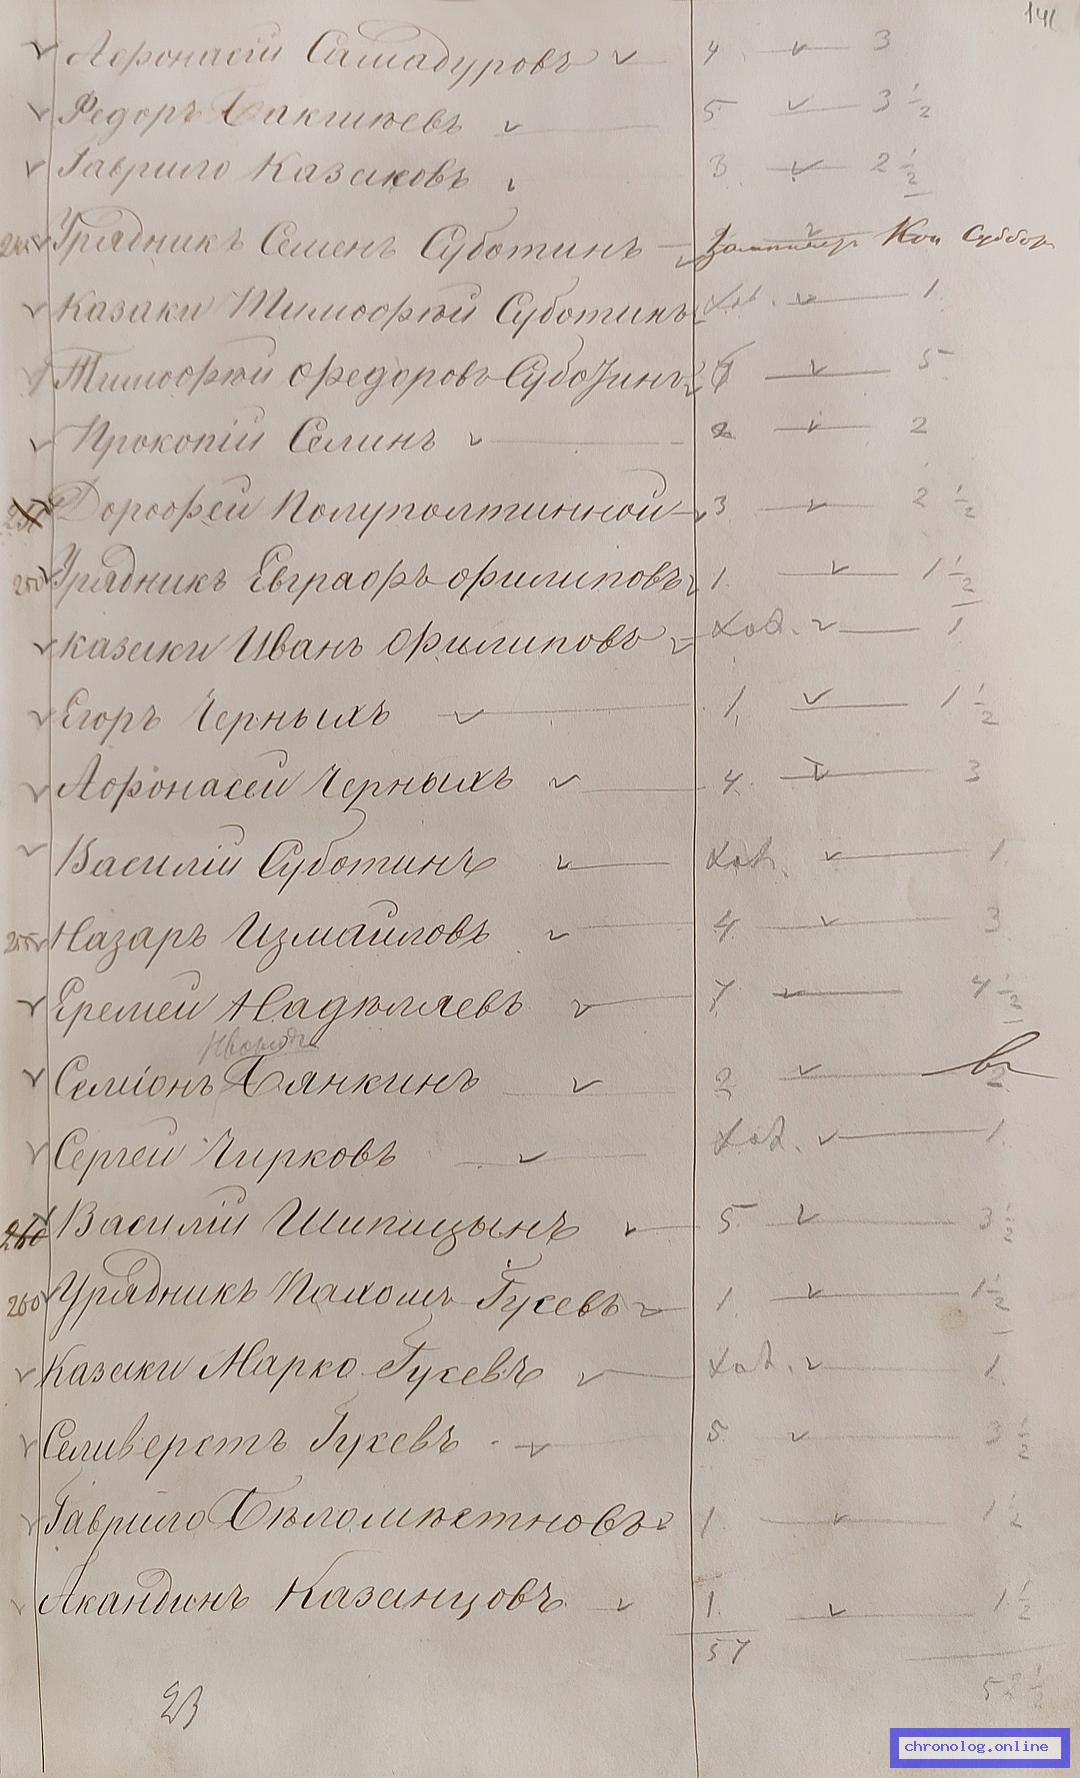 141
Афонасiй Самадуровъ 4 3
Федоръ Бакшеевъ 5 3 1/2
Гаврило Казаковъ 3 2 1/2
Урядникъ Семенъ Суботинъ
Казаки Тимофѣй Суботинъ Хол. 1
Тимофѣй Федоровъ Суботинъ 5
Прокопiй Селинъ 2 2
Дорофей Полуполтинной 3 2 1/2
250 Урядникъ Евграфъ Филиповъ 1 1 1/2
казаки Иванъ Филиповъ Хол. 1
Егоръ Черныхъ 1 1 1/2
Афонасей Черныхъ 4 3
Василiй Суботинъ Хол. 1
255 Назаръ Измайловъ 4 3
Еремей Надѣляевъ 7 4 1/2
Семiонъ Банкинъ 2
Сергей Чирковъ Хол. 1
260 Василiй Шипицынъ 5 3 1/2
260 Урядникъ Пахомъ Гусевъ 1 1 1/2
Казаки Марко Гусевъ Хол. 1
Селиверстъ Гусевъ 5 3 1/2
Гаврило Бѣломѣстновъ 1 1 1/2
Акандинъ Казанцовъ 1 1 1/2
57
52 1/2
23
chronolog.online